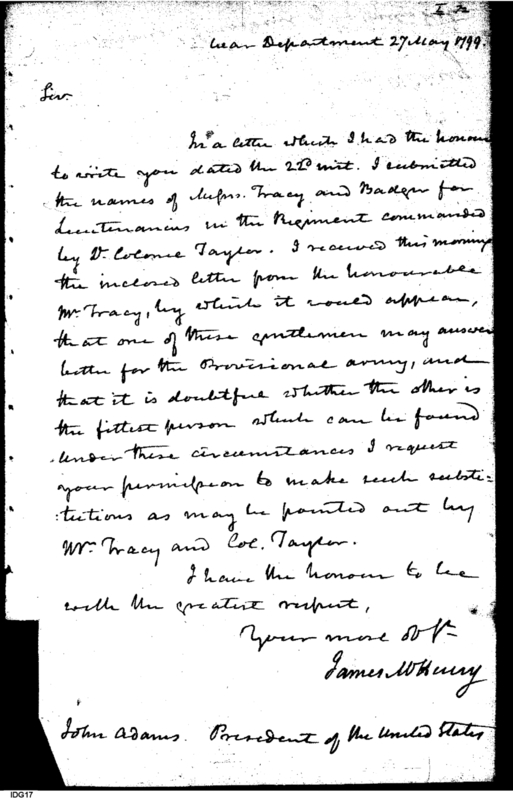 War Department 27 May 1799.
Sir.
In a letter which I had the honour
to write you dated the 22d inst. I submitted
the names of Messrs. Tracy and Badger for
Lieutenancies in the Regiment commanded
by Lt. Colonel Taylor. I received this morning
the inclosed letter from the honourable
Mr. Tracy, by which it would appear,
that one of these gentlemen may answer
better for the Provisional army, and
that it is doubtful whether the other is
the fittest person which can be found
Under these circumstances I request
your permission to make such substi=
=tutions as may be pointed out by
Mr. Tracy and Col. Taylor.
I have the honour to be
with the greatest respect,
Your most obt
James McHenry
John Adams. President of the United States
IDG17